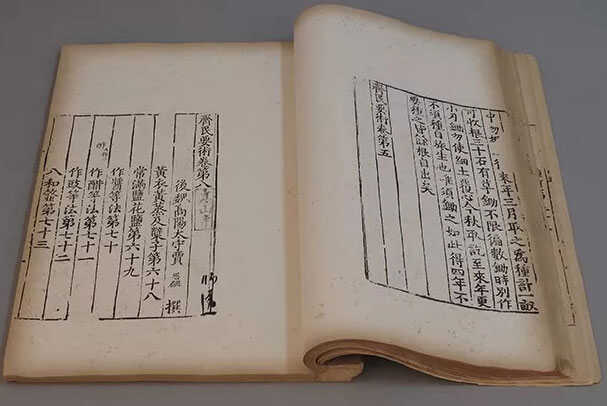 來年三月取之爲種計畝
可收根三十石有草鋤不限徧數鋤時別作
小月鋤勿使細土覆心八秋取訖至來年更
不須種自旅生也惟須鋤之如此得四年不
要種之皆餘根自出矣
齊民要術卷第五
齊民要術卷第八
後魏高陽太守賈思勰撰
黃衣黃蒸及糵子第六十八
常滿鹽花鹽第六十九
作醬等法第七十
作酢等法第七十一
作豉等法第七十二
八和齏第七十三